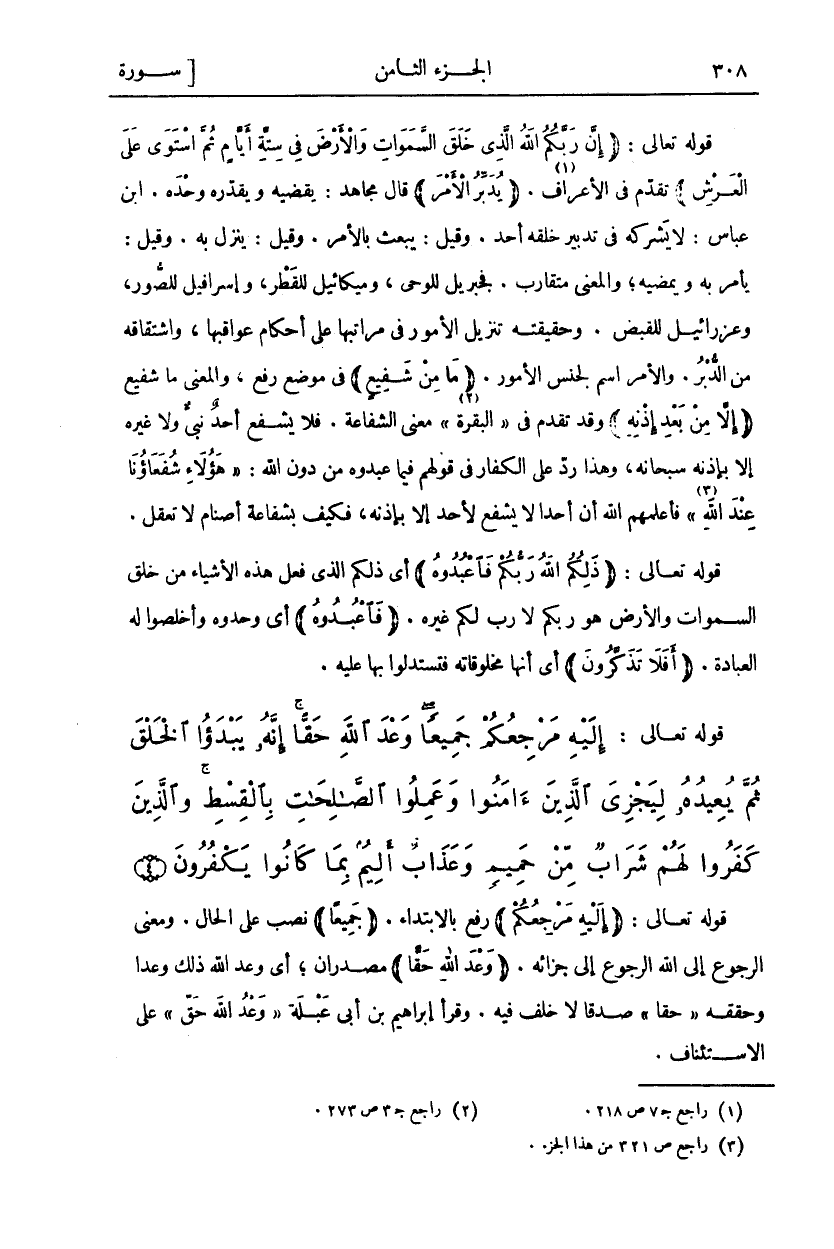 ٣٠٨ الجزء الثامن [ سورة
قوله تعالى : ﴿ إِنَّ رَبَّكُمُ اللهُ الَّذِى خَلَقَ السَّمَوَاتِ وَالْأَرْضَ فِى سِتَّةِ أَيَّامٍ ثُمَّ اسْتَوَى عَلَى
الْعَرْشِ ﴾ تقدّم فى الأعراف (١) . ﴿ يُدَبِّرُ الْأَمْرَ ﴾ قال مجاهد : يقضيه ويقدّره وحْدَه . ابن
عباس : لا يَشركه فى تدبير خلقه أحد . وقيل : يبعث بالأمر . وقيل : ينزل به . وقيل :
يأمر به ويمضيه؛ والمعنى متقارب . فجبريل للوحى ، وميكائيل للقَطْر، وإسرافيل للصُّور،
وعزرائيل للقبض . وحقيقته تنزيل الأمور فى مراتبها على أحكام عواقبها ، واشتقاقه
من الدُّبُر . والأمر اسم لجنس الأمور . ﴿ مَا مِنْ شَفِيعٍ ﴾ فى موضع رفع ، والمعنى ما شفيع
﴿ إِلَّا مِنْ بَعْدِ إِذْنِهِ ﴾ وقد تقدم فى « البقرة » (٢) معنى الشفاعة . فلا يشفع أحدٌ نبىٌّ ولا غيره
إلا بإذنه سبحانه، وهذا ردّ على الكفار فى قولهم فيما عبدوه من دون الله : « هَؤُلَاءِ شُفَعَاؤُنَا
عِنْدَ اللهِ » (٣) فأعلمهم الله أن أحدا لا يشفع لأحد إلا بإذنه، فكيف بشفاعة أصنام لا تعقل .
قوله تعالى : ﴿ ذَلِكُمُ اللهُ رَبُّكُمْ فَاعْبُدُوهُ ﴾ أى ذلكم الذى فعل هذه الأشياء من خلق
السموات والأرض هو ربكم لا رب لكم غيره . ﴿ فَاعْبُدُوهُ ﴾ أى وحدوه وأخلصوا له
العبادة . ﴿ أَفَلَا تَذَكَّرُونَ ﴾ أى أنها مخلوقاته فتستدلوا بها عليه .
قوله تعالى : إِلَيْهِ مَرْجِعُكُمْ جَمِيعًا وَعْدَ ٱللَّهِ حَقًّا إِنَّهُۥ يَبْدَؤُا۟ ٱلْخَلْقَ
ثُمَّ يُعِيدُهُۥ لِيَجْزِىَ ٱلَّذِينَ ءَامَنُوا وَعَمِلُوا ٱلصَّٰلِحَٰتِ بِٱلْقِسْطِ وَٱلَّذِينَ
كَفَرُوا لَهُمْ شَرَابٌ مِّنْ حَمِيمٍ وَعَذَابٌ أَلِيمٌ بِمَا كَانُوا يَكْفُرُونَ ﴿٤﴾
قوله تعالى : ﴿ إِلَيْهِ مَرْجِعُكُمْ ﴾ رفع بالابتداء . ﴿ جَمِيعًا ﴾ نصب على الحال . ومعنى
الرجوع إلى الله الرجوع إلى جزائه . ﴿ وَعْدَ اللهِ حَقًّا ﴾ مصدران ؛ أى وعد الله ذلك وعدا
وحققه « حقا » صدقا لا خلف فيه . وقرأ إبراهيم بن أبى عَبْلَة « وَعْدُ اللهَ حَقّ » على
الاستئناف .
(١) راجع ج٧ ص ٢١٨ . (٢) راجع ج٣ ص ٢٧٣ .
(٣) راجع ص ٣٢١ من هذا الجزء .